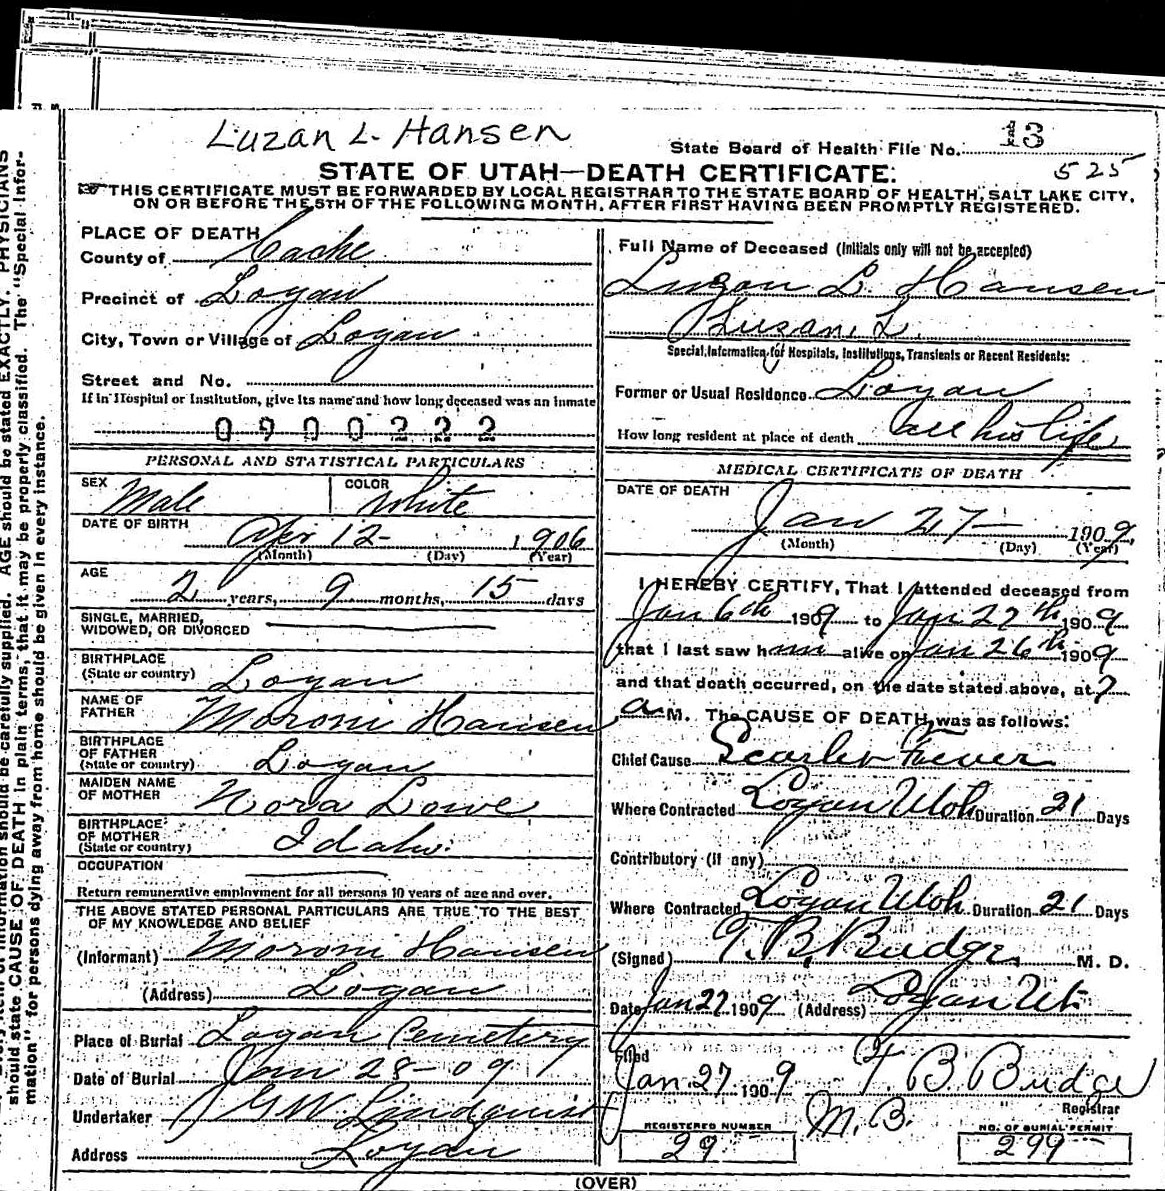 Luzan L. Hansen
State Board of Health File No. 13
525
STATE OF UTAH—DEATH CERTIFICATE.
THIS CERTIFICATE MUST BE FORWARDED BY LOCAL REGISTRAR TO THE STATE BOARD OF HEALTH, SALT LAKE CITY,
ON OR BEFORE THE 5TH OF THE FOLLOWING MONTH, AFTER FIRST HAVING BEEN PROMPTLY REGISTERED.
PLACE OF DEATH
County of Cache
Precinct of Logan
City, Town or Village of Logan
Street and No.
If in Hospital or Institution, give its name and how long deceased was an inmate
0900222
PERSONAL AND STATISTICAL PARTICULARS
SEX Male
COLOR White
DATE OF BIRTH
Apr 12 1906
(Month) (Day) (Year)
AGE
2 years, 9 months, 15 days
SINGLE, MARRIED,
WIDOWED, OR DIVORCED
BIRTHPLACE
(State or country) Logan
NAME OF
FATHER Moroni Hansen
BIRTHPLACE
OF FATHER
(State or country) Logan
MAIDEN NAME
OF MOTHER Nora Lowe
BIRTHPLACE
OF MOTHER
(State or country) Idaho
OCCUPATION
Return remunerative employment for all persons 10 years of age and over.
THE ABOVE STATED PERSONAL PARTICULARS ARE TRUE TO THE BEST
OF MY KNOWLEDGE AND BELIEF
(Informant) Moroni Hansen
(Address) Logan
Place of Burial Logan Cemetery
Date of Burial Jan 28-09
Undertaker G W Lindquist
Address Logan
Full Name of Deceased (Initials only will not be accepted)
Luzon L. Hansen
Luzan, L.
Special Information for Hospitals, Institutions, Transients or Recent Residents:
Former or Usual Residence Logan
How long resident at place of death all his life
MEDICAL CERTIFICATE OF DEATH
DATE OF DEATH
Jan 27 1909
(Month) (Day) (Year)
I HEREBY CERTIFY, That I attended deceased from
Jan 6th 1909 to Jan 27th 1909
that I last saw him alive on Jan 26th 1909
and that death occurred, on the date stated above, at 7
a M. The CAUSE OF DEATH was as follows:
Chief Cause Scarlet Fever
Where Contracted Logan Utah Duration 21 Days
Contributory (if any)
Where Contracted Logan Utah Duration 21 Days
(Signed) T. B. Budge M. D.
Date Jan 27 1909 (Address) Logan Ut.
Filed
Jan. 27 1909 T. B. Budge
Registrar
M. B.
REGISTERED NUMBER
29
NO. OF BURIAL PERMIT
299
(OVER)
AGE should be stated EXACTLY. PHYSICIANS
should state CAUSE OF DEATH in plain terms, that it may be properly classified. The "Special Infor-
mation" for persons dying away from home should be given in every instance.